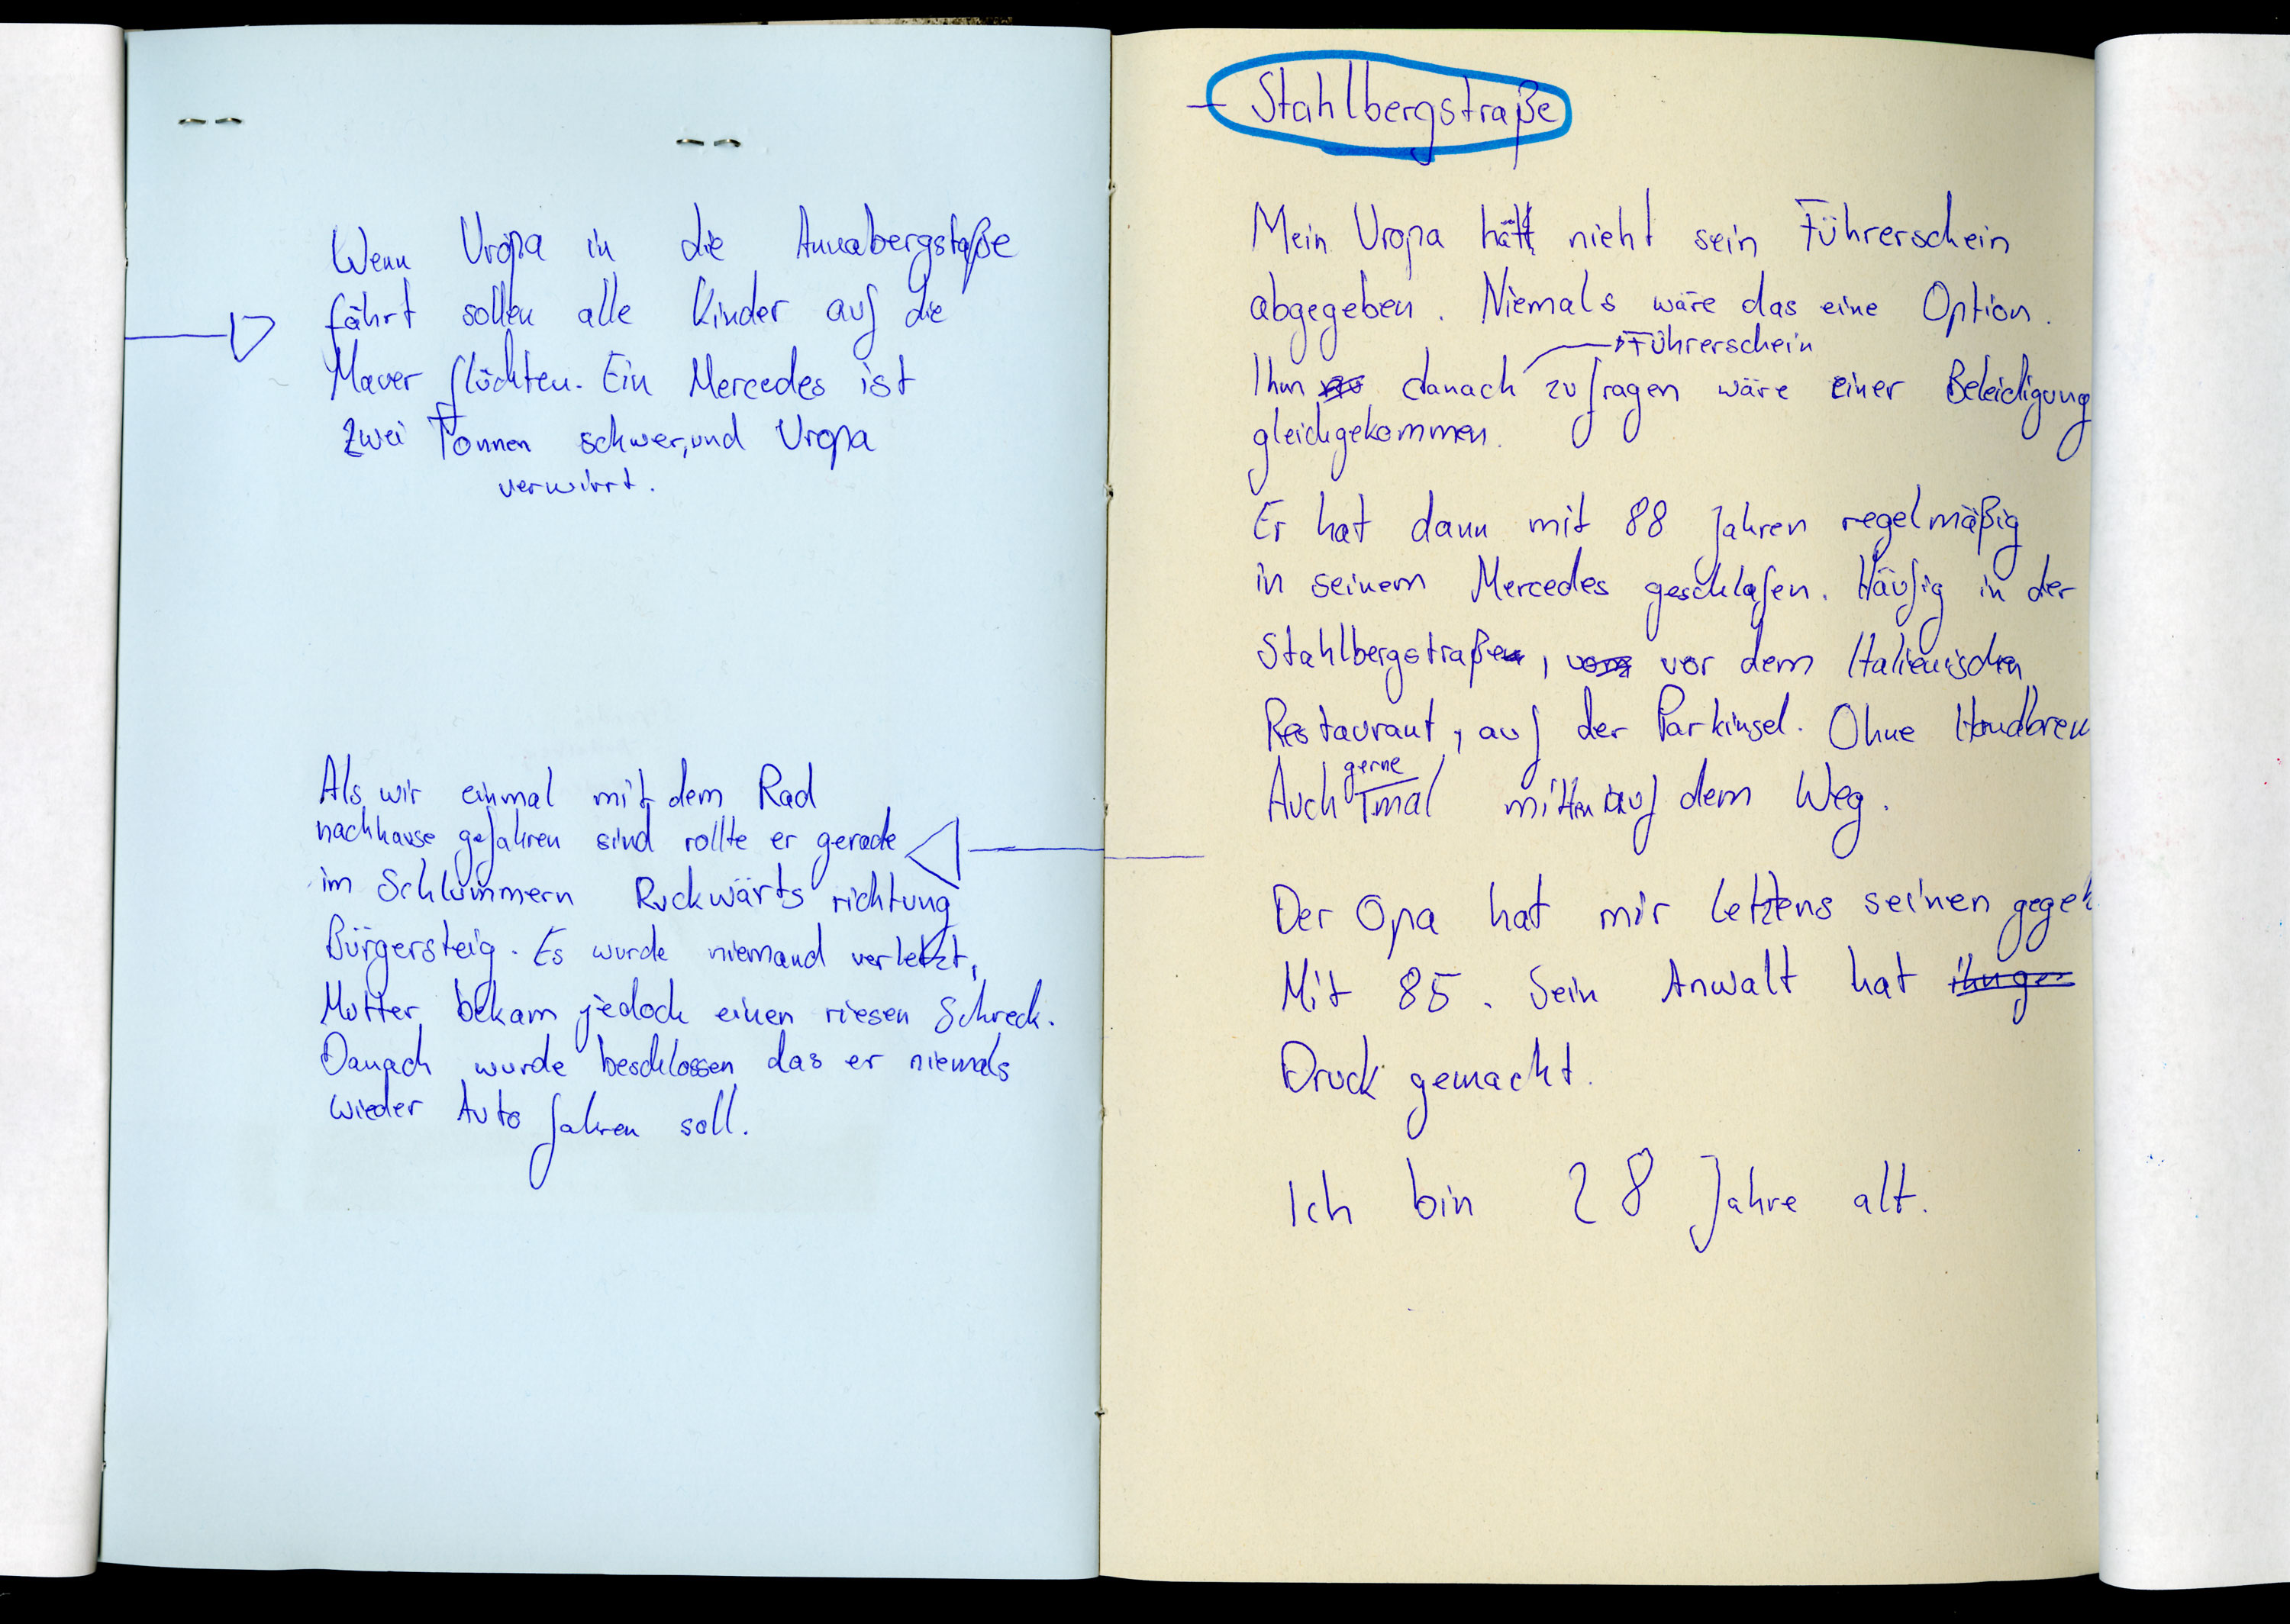 Wenn Uropa in die Annabergstaße
fährt sollen alle Kinder auf die
Mauer flüchten. Ein Mercedes ist
zwei Tonnen schwer, und Uropa
verwirrt.
Als wir einmal mit dem Rad
nachhause gefahren sind rollte er gerade
im Schlummern Ruckwärts richtung
Bürgersteig. Es wurde niemand verletzt,
Mutter bekam jedoch einen riesen Schreck.
Danach wurde beschlossen das er niemals
wieder Auto fahren soll.
- Stahlbergstraße
Mein Uropa hätt nicht sein Führerschein
abgegeben. Niemals wäre das eine Option.
Führerschein
Ihm danach zu fragen wäre einer Beleidigung
gleichgekommen.
Er hat dann mit 88 Jahren regelmäßig
in seinem Mercedes geschlafen. Häufig in der
Stahlbergstraße, vor dem Italienischen
Restaurant, auf der Parkinsel. Ohne
gerne
Auch mal mitten auf dem Weg.
Der Opa hat mir letztens seinen
Mit 85. Sein Anwalt hat
Druck gemacht.
Ich bin 28 Jahre alt.